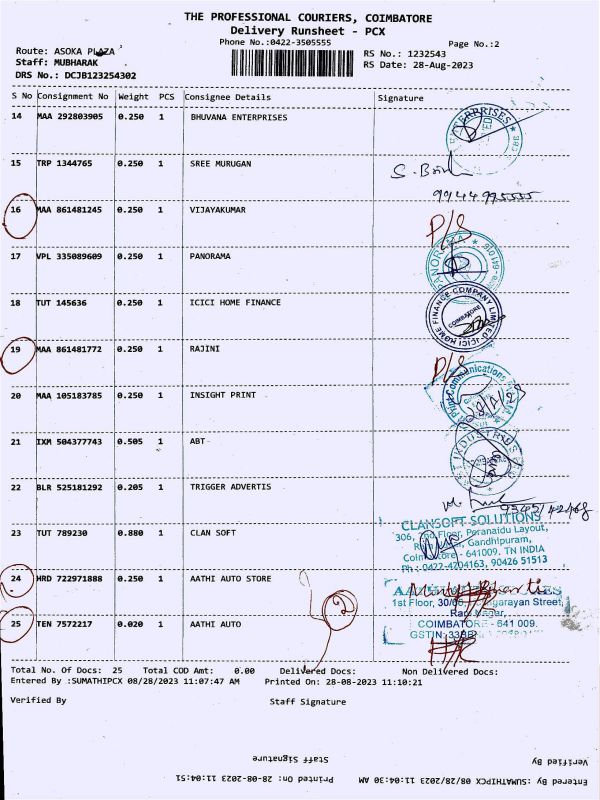 THE PROFESSIONAL COURIERS, COIMBATORE
Delivery Runsheet - PCX
Phone No.:0422-3505555
Page No.:2
Route: ASOKA PLAZA
Staff: MUBHARAK
DRS No.: DCJB123254302
RS No.: 1232543
RS Date: 28-Aug-2023
S No Consignment No Weight PCS Consignee Details Signature
14 MAA 292803905 0.250 1 BHUVANA ENTERPRISES
15 TRP 1344765 0.250 1 SREE MURUGAN
9944995555
16 MAA 861481245 0.250 1 VIJAYAKUMAR
P/S
17 VPL 335089609 0.250 1 PANORAMA
PANORAMA
18 TUT 145636 0.250 1 ICICI HOME FINANCE
ICICI HOME FINANCE COMPANY LIMITED
COIMBATORE
19 MAA 861481772 0.250 1 RAJINI
P/S
20 MAA 105183785 0.250 1 INSIGHT PRINT
21 IXM 504377743 0.505 1 ABT
22 BLR 525181292 0.205 1 TRIGGER ADVERTIS
23 TUT 789230 0.880 1 CLAN SOFT
CLANSOFT SOLUTIONS
306, Floor, Peranaidu Layout,
Gandhipuram,
Coimbatore - 641009. TN INDIA
Ph : 0422-4204163, 90426 51513
24 HRD 722971888 0.250 1 AATHI AUTO STORE
1st Floor, Street,
25 TEN 7572217 0.020 1 AATHI AUTO
2
COIMBATORE - 641 009.
Total No. Of Docs: 25 Total COD Amt: 0.00 Delivered Docs: Non Delivered Docs:
Entered By :SUMATHIPCX 08/28/2023 11:07:47 AM Printed On: 28-08-2023 11:10:21
Verified By Staff Signature
Verified By Staff Signature
Entered By: SUMATHIPCX 08/28/2023 11:04:30 AM Printed On: 28-08-2023 11:04:51